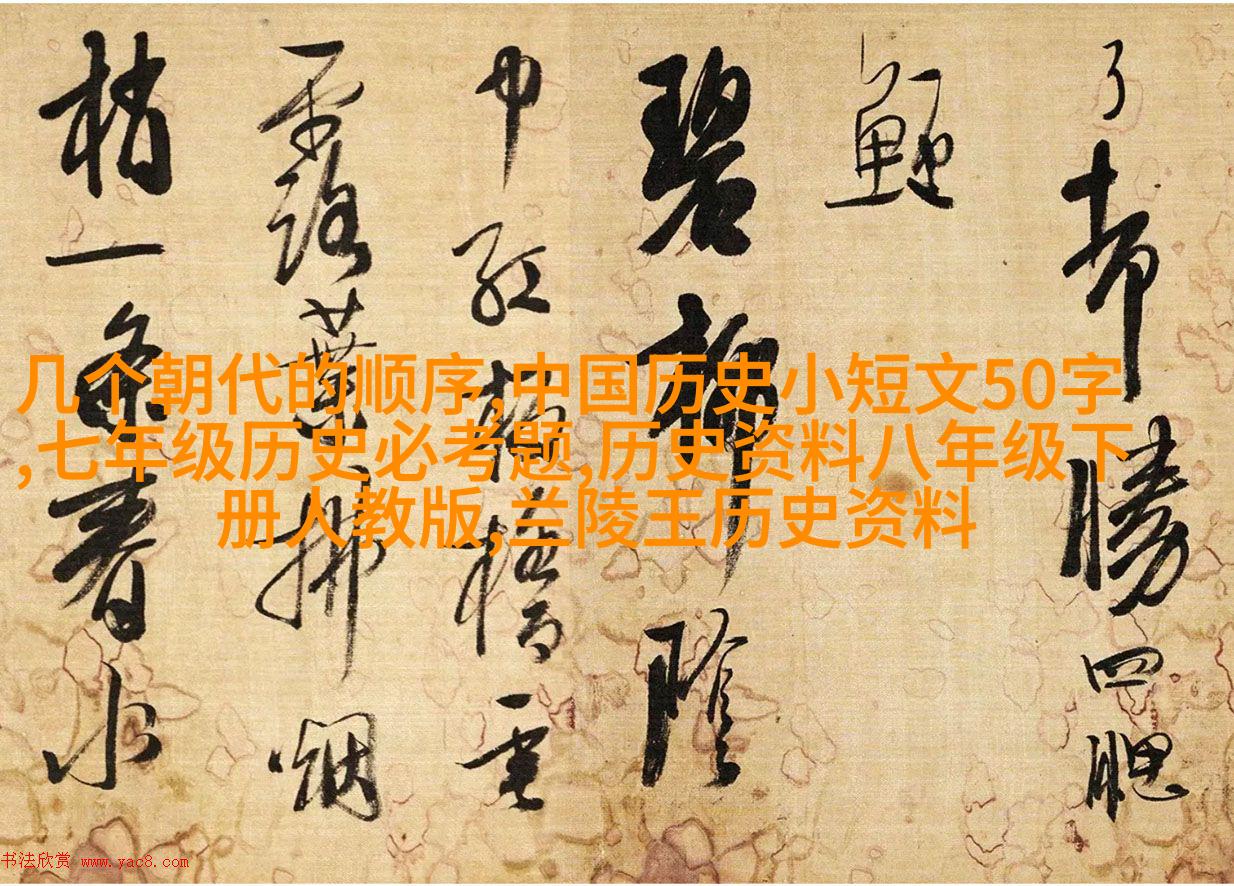 勝四腮
碧
中紅
葉拂烟
梢一条春水
几个朝代的顺序,中国历史小短文50字
,七年级历史必考题,历史资料八年级下
册人教版,兰陵王历史资料
书法欣赏 www.yac8.com